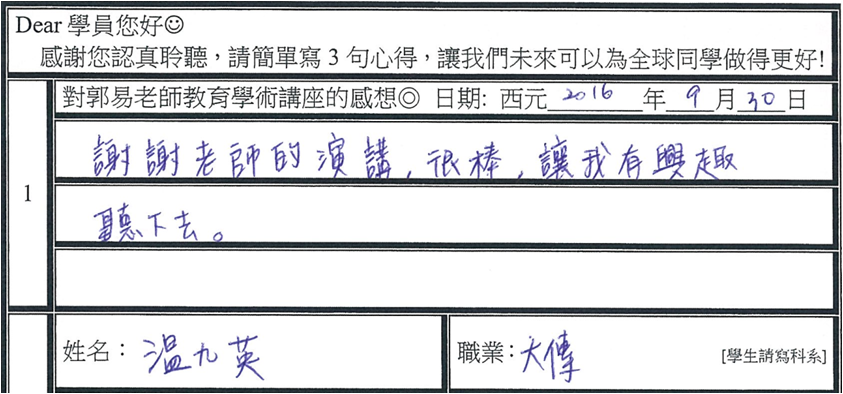 Dear 學員您好☺
感謝您認真聆聽，請簡單寫 3 句心得，讓我們未來可以為全球同學做得更好!
對郭易老師教育學術講座的感想◎ 日期: 西元 2016 年 9 月 30 日
1
謝謝老師的演講，很棒，讓我有興趣
聽下去。
姓名： 溫九英
職業： 大傳 [學生請寫科系]